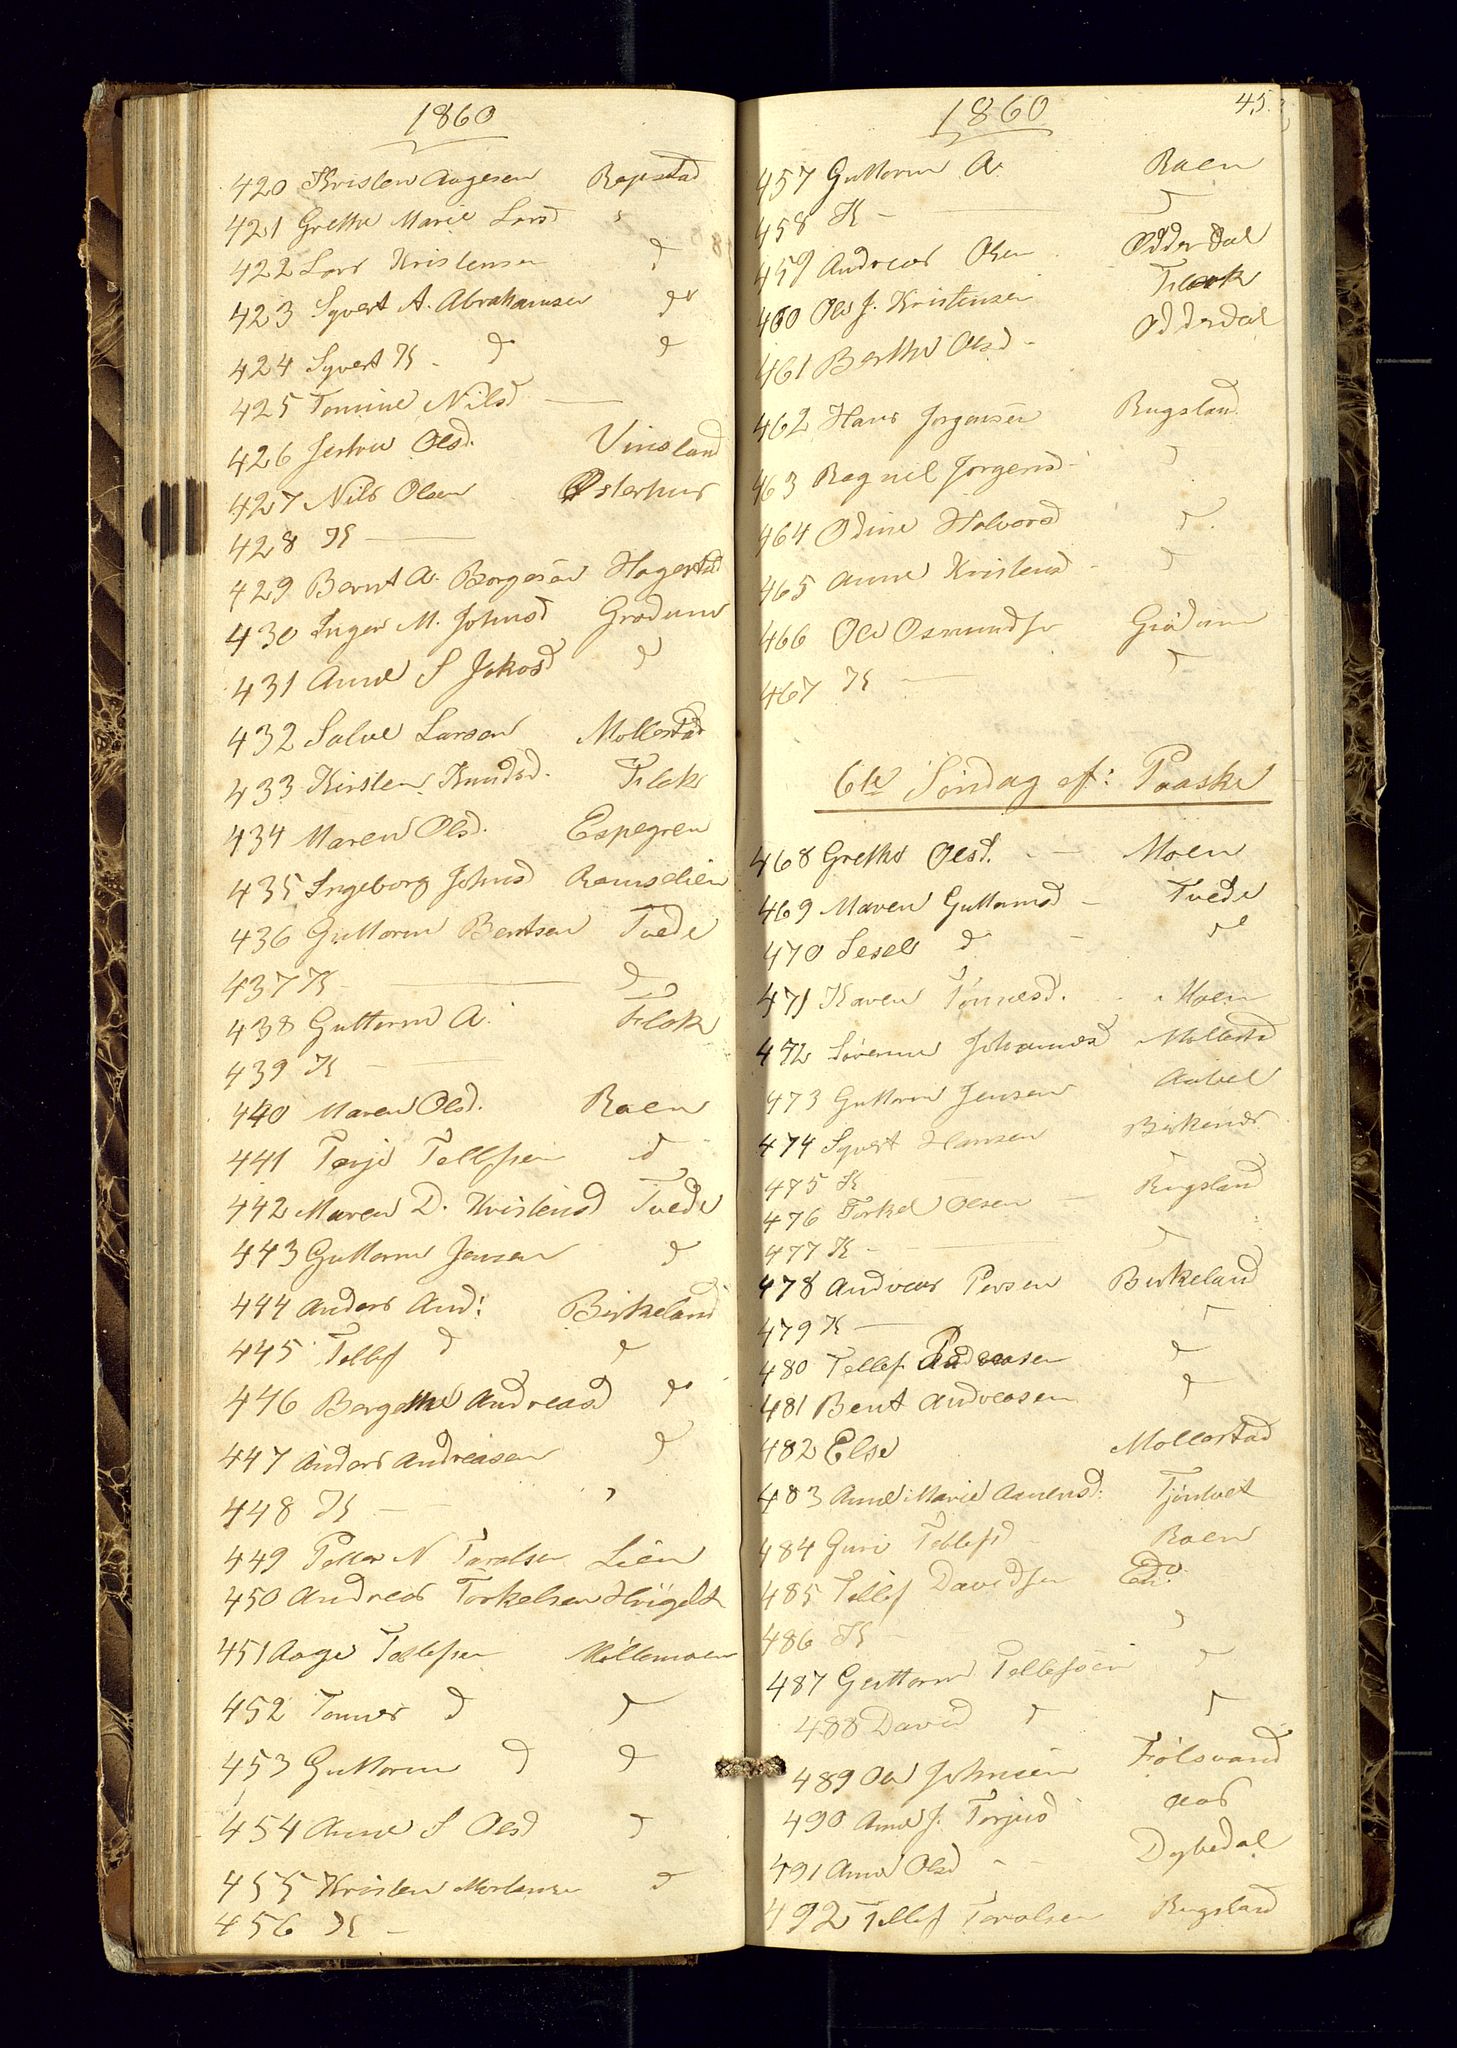 1860
420 Kristen Aagesen Repstad
421 Grethe Marie Larsd "
422 Lars Kristensen d
423 Syvert A. Abrahamsen do
424 Syvert K - d d
425 Tomine Nilsd —
426 Olsd. Vinsland
427 Nils Olsen Østerhus
428 K —
429 Bernt A. Borgesen Hagestad
430 Inger M. Johnsd Grødum
431 Anne S Jakosd d
432 Salve Larsen Mollestad
433 Kirsten Knudsd. Flak
434 Maren Olsd. Espegren
435 Ingeborg Johnsd Ramselien
436 Guttorm Bentsen Tvede
437 K — d
438 Guttorm A. Flak
439 K —
440 Maren Olsd. Roen
441 Terje Tellefsen d
442 Maren D. Kristensd Tvede
443 Guttorm Jensen d
444 Anders And: Birkeland
445 Tellef d d
446 Bergethe Andreasd do
447 Anders Andreasen d
448 K — "
449 Peder N Taralsen Lien
450 Andreas Torkelsen
451 Aage Tellefsen Möllemoen
452 Tønnes d d
453 Guttorm d d
454 Anne S Olsd d
455 Kristen Mortensen d
456 K -
1860 45.
457 Guttorm A. Roen
458 K - — d
459 Andreas Olsen Odderdal
460 Ole J. Kristensen Flak
461 Berthe Olsd - Odderdal
462 Hans Jørgensen Rugsland
463 Ragnil Jørgensd - d
464 Odine Halvorsd d
465 Anne Kristensd - d
466 Ole Osmundsen Grødum
467 K — d
6te Søndag ef: Paaske
468 Grethe Olsd. - — Moen
469 Maren Guttormsd - Tvede
470 Sesel d - d
471 Karen Tønnesd. - Moen
472 Sørenne Johannesd Mollestad
473 Guttorm Jensen Aabel
474 Syvert Hansen Birkenes
475 K — d
476 Torkel Olsen — Rugsland
477 K - — d
478 Andreas Persen Birkeland
479 K — d
480 Tellef Andreasen d
481 Bent Andreasen d
482 Else Mollestad
483 Anne Marie Aanensd: Tjøntvet
484 Guri Tellefsd - Roen
485 Tellef Davidsen
486 K - d
487 Guttorm Tellefsen d
488 David d d
489 Ole Johnsen Følsvand
490 Anne J. Terjesd Aas
491 Anne Olsd - - Dybedal
492 Tellef Taralsen Rugsland